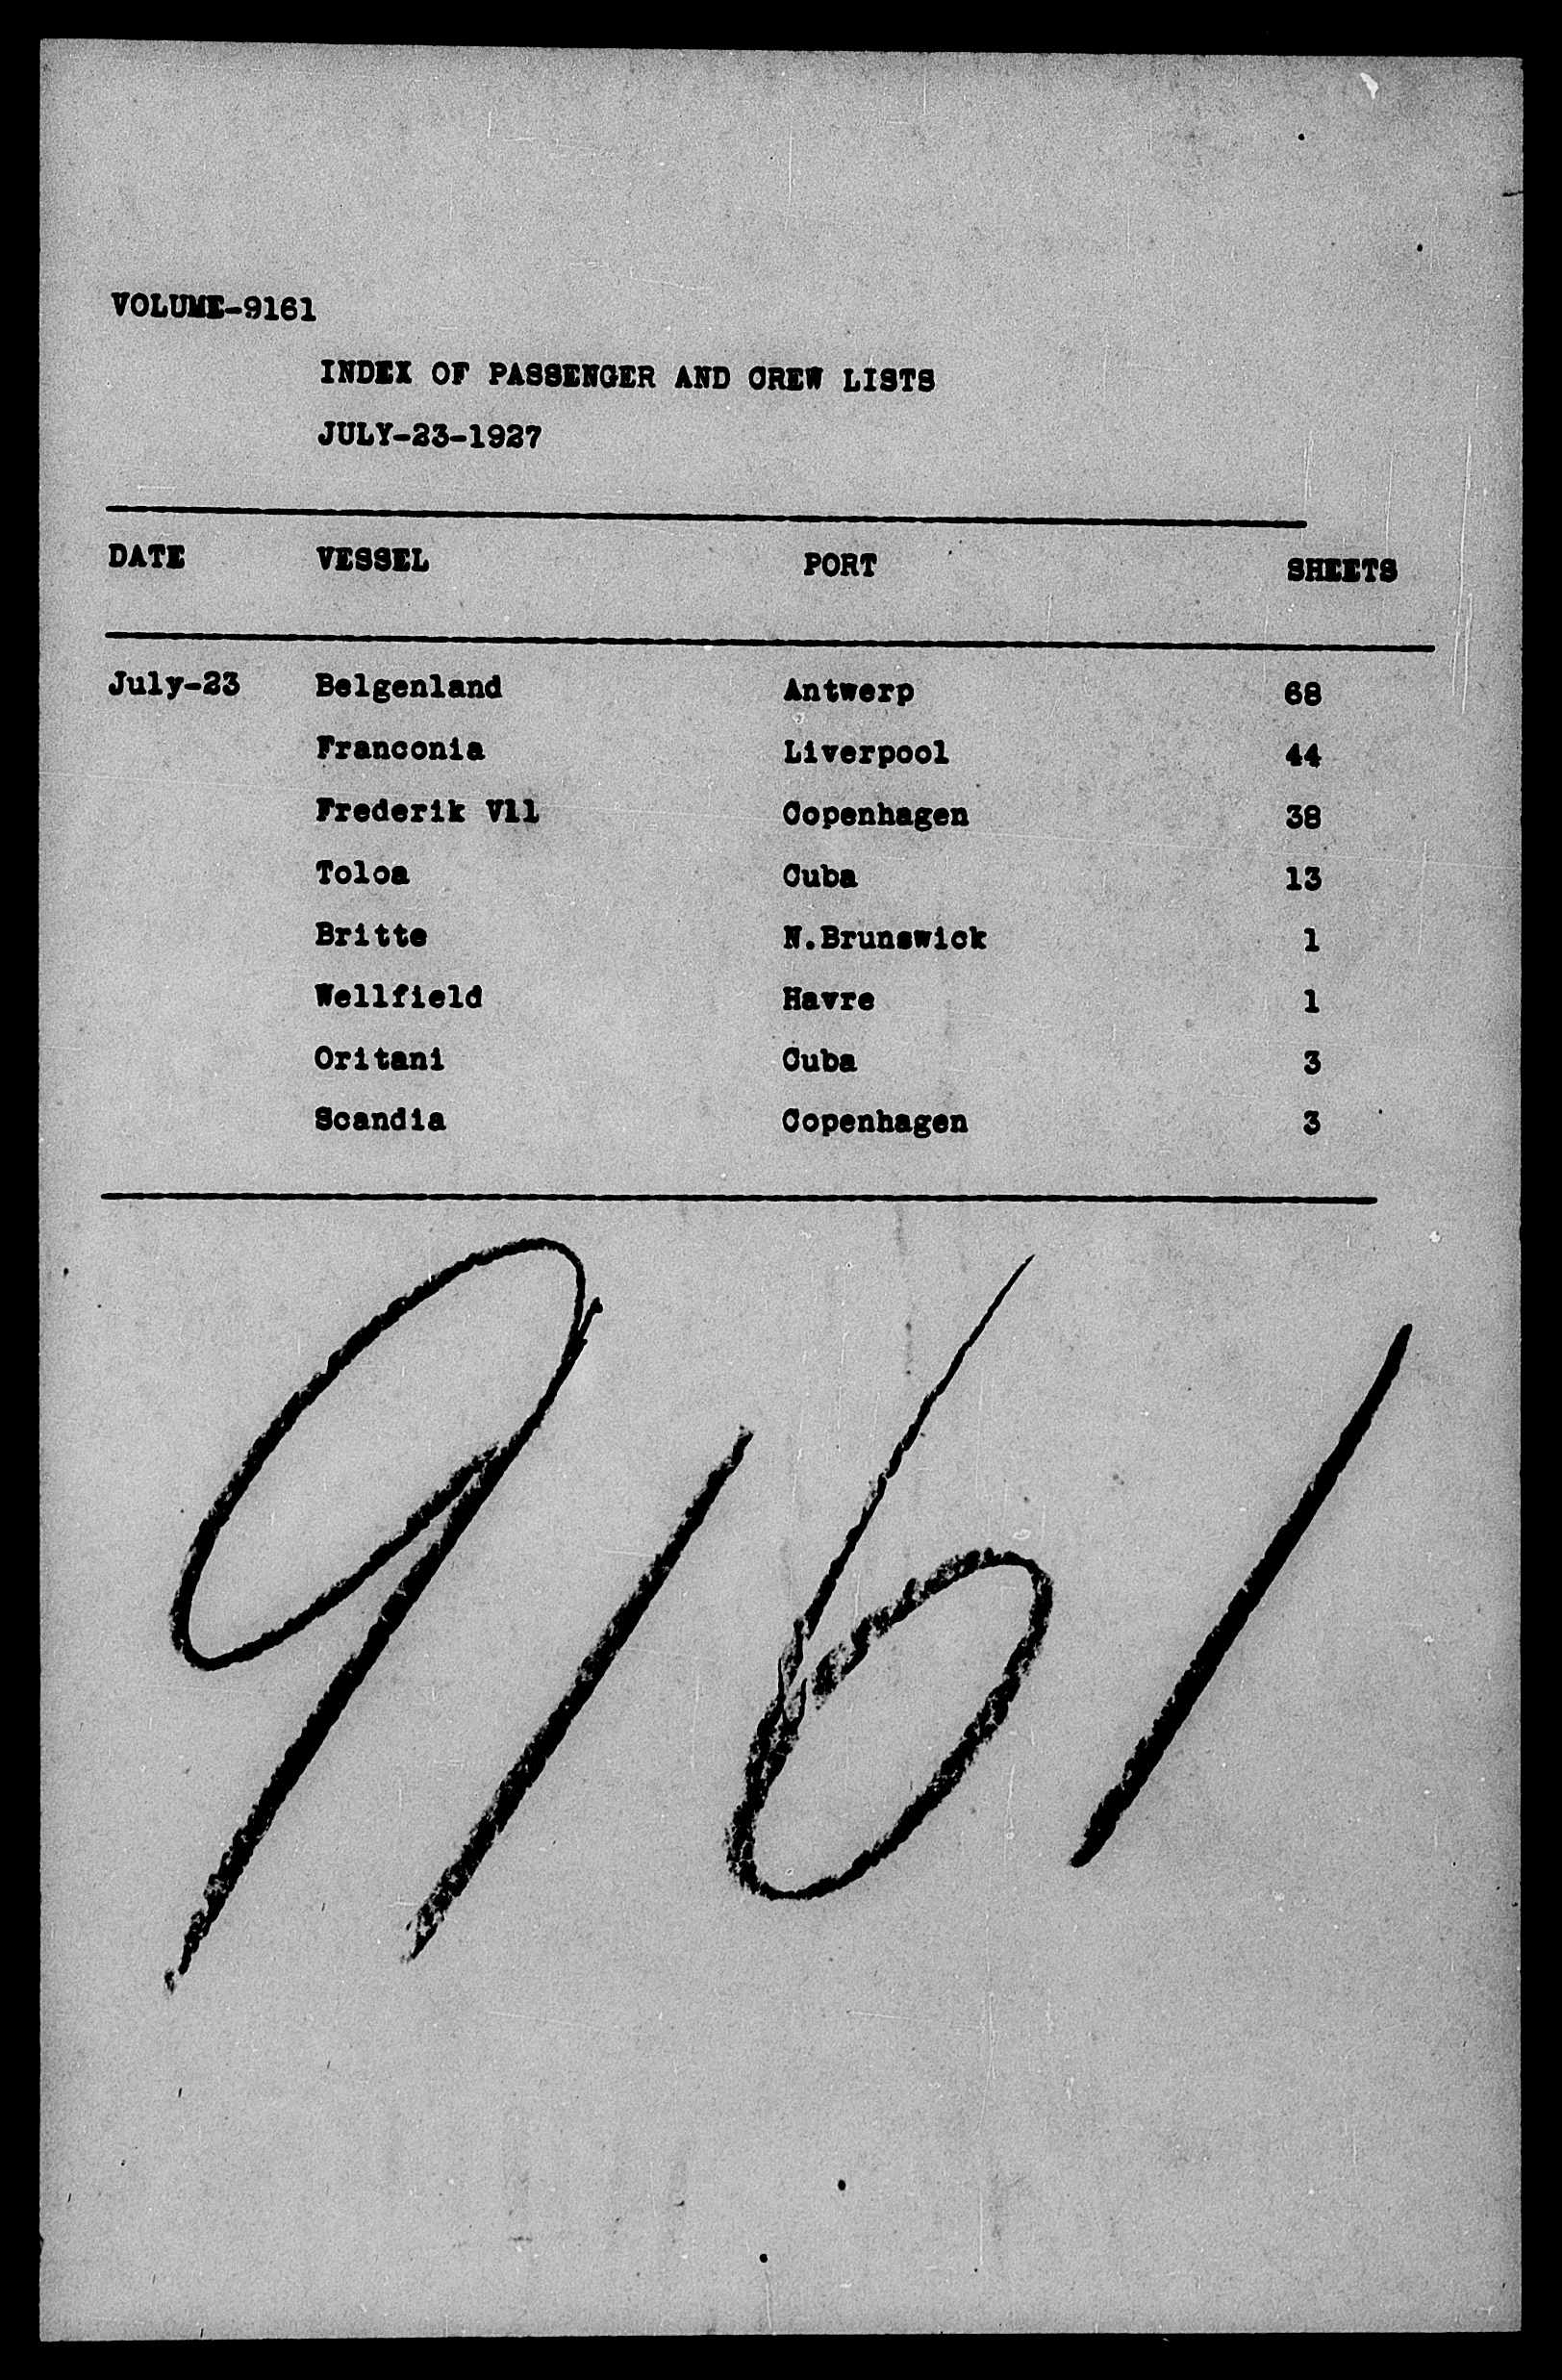 VOLUME-9161
INDEX OF PASSENGER AND CREW LISTS
JULY-23-1927
DATE VESSEL PORT SHEETS
July-23 Belgenland Antwerp 68
Franconia Liverpool 44
Frederik Vll Copenhagen 38
Toloa Cuba 13
Britte N.Brunswick 1
Wellfield Havre 1
Oritani Cuba 3
Scandia Copenhagen 3
9161